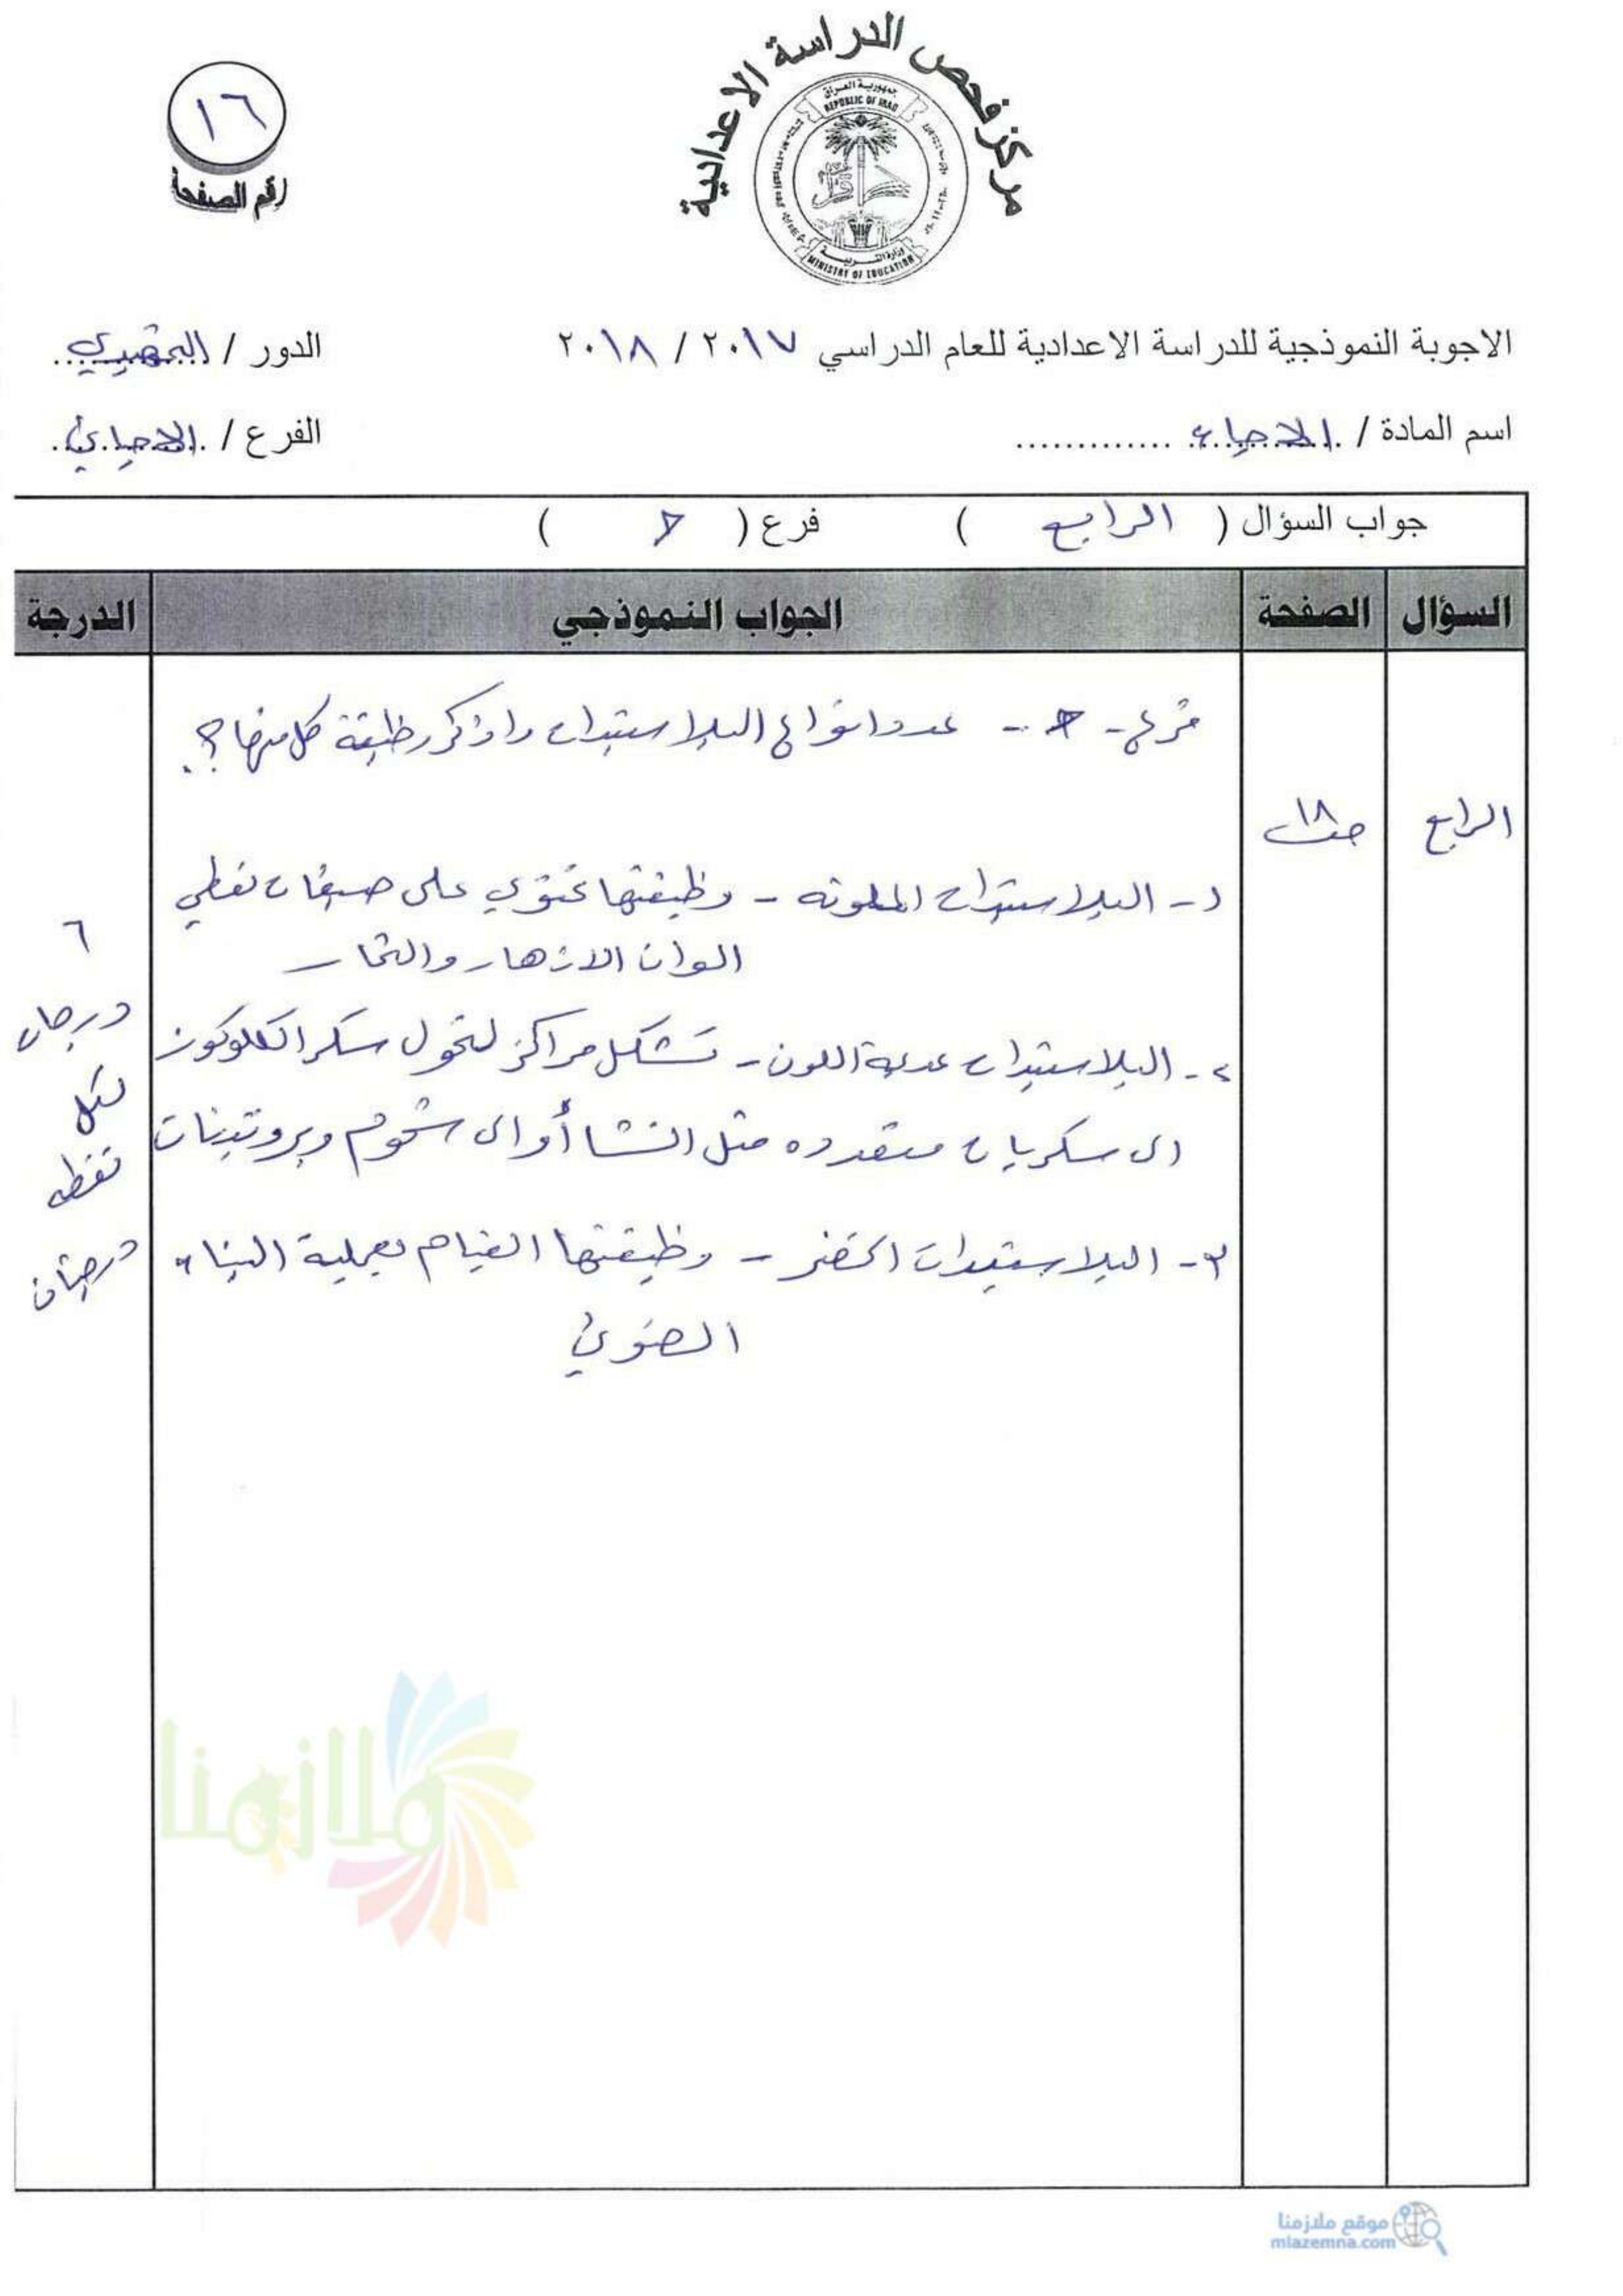 مركز فحص الدراسة الاعدادية
جمهورية العراق
REPUBLIC OF IRAQ
وزارة التربية
MINISTRY OF EDUCATION
١٦
رقم الصفحة
الاجوبة النموذجية للدراسة الاعدادية للعام الدراسي ٢٠١٧ / ٢٠١٨
الدور / التمهيدي
اسم المادة / الاحياء .............
الفرع / الاحيائي
جواب السؤال ( الرابع ) فرع ( )
السؤال الصفحة الجواب النموذجي الدرجة
فرع - - عدد انواع البلاستيدات واذكر وظيفة كل منها؟
الرابع ص١٨
١- البلاستيدات الملونه - وظيفتها تحتوي على صبغات تعطي
الوان الازهار والثمار
٢- البلاستيدات عديمة اللون - تشكل مراكز لتحول سكر الكلوكوز
الى سكريات متعدده مثل النشا أو الى شحوم وبروتينات
٣- البلاستيدات الخضر - وظيفتها القيام بعملية البناء
الضوئي
٦
درجات
لكل
نقطه
درجتان
ملازمنا
موقع ملازمنا
mlazemna.com